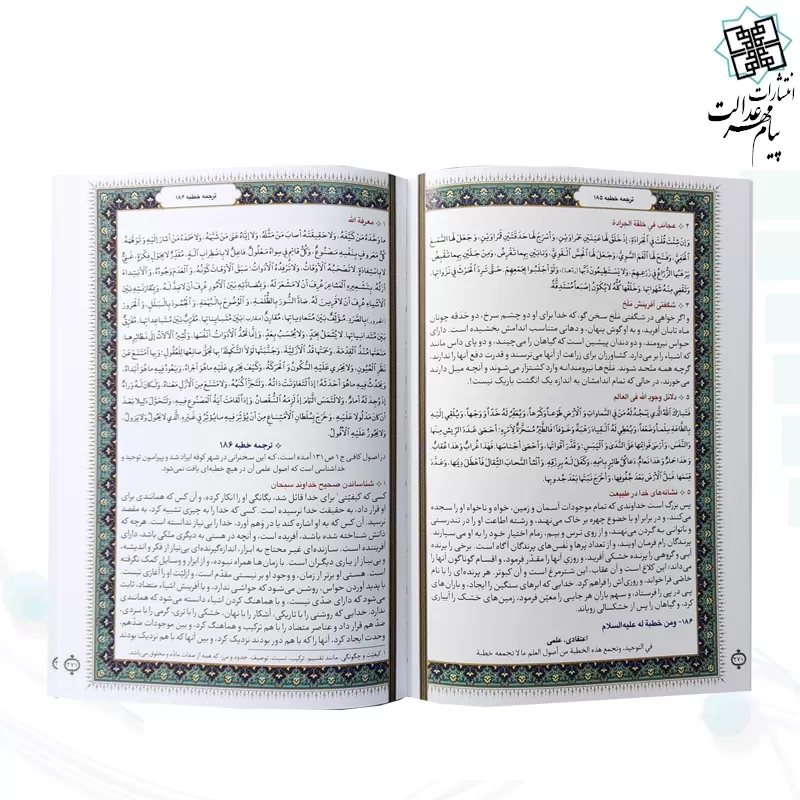 انتشارات
پیام مهر عدالت
ترجمه خطبه ۱۸۵
۴ - عجائب في خلقة الجرادة
وَإِنْ شِئْتَ قُلْتَ فِي الْجَرَادَةِ، إِذْ خَلَقَ لَهَا عَيْنَيْنِ حَمْرَاوَيْنِ، وَأَسْرَجَ لَهَا حَدَقَتَيْنِ قَمْرَاوَيْنِ، وَجَعَلَ لَهَا السَّمْعَ
الْخَفِيَّ، وَفَتَحَ لَهَا الْفَمَ السَّوِيَّ، وَجَعَلَ لَهَا الْحِسَّ الْقَوِيَّ، وَنَابَيْنِ بِهِمَا تَقْرِضُ، وَمِنْجَلَيْنِ بِهِمَا تَقْبِضُ.
يَرْهَبُهَا الزُّرَّاعُ فِي زَرْعِهِمْ، وَلَا يَسْتَطِيعُونَ ذَبَّهَا، وَلَوْ أَجْلَبُوا بِجَمْعِهِمْ، حَتَّى تَرِدَ الْحَرْثَ فِي نَزَوَاتِهَا،
وَتَقْضِيَ مِنْهُ شَهَوَاتِهَا. وَخَلْقُهَا كُلُّهُ لَا يُكَوِّنُ إِصْبَعاً مُسْتَدِقَّةً.
۴ - شگفتی آفرینش ملخ
و اگر خواهی در شگفتی ملخ سخن گو، که خدا برای او دو چشم سرخ، دو حدقه چونان
ماه تابان آفرید، و به او گوش پنهان، و دهانی متناسب اندامش بخشیده است. دارای
حواس نیرومند، و دو دندان پیشین است که گیاهان را می‌چیند، و دو پای داس مانند
که اشیاء را بر می‌دارد. کشاورزان برای زراعت از آنها می‌ترسند و قدرت دفع آنها را ندارند،
گرچه همه متّحد شوند. ملخ‌ها نیرومندانه وارد کشتزار می‌شوند و آنچه میل دارند
می‌خورند، در حالی که تمام اندامشان به اندازه یک انگشت باریک نیست!.
۵ - دلائل وجود الله في العالم
فَتَبَارَكَ اللَّهُ الَّذِي يَسْجُدُ لَهُ مَنْ فِي السَّمَاوَاتِ وَالْأَرْضِ طَوْعاً وَكَرْهاً، وَيُعَفِّرُ لَهُ خَدّاً وَوَجْهاً، وَيُلْقِي إِلَيْهِ
بِالطَّاعَةِ سِلْماً وَضَعْفاً، وَيُعْطِي لَهُ الْقِيَادَ رَهْبَةً وَخَوْفاً! فَالطَّيْرُ مُسَخَّرَةٌ لِأَمْرِهِ؛ أَحْصَى عَدَدَ الرِّيشِ مِنْهَا
وَالنَّفَسَ، وَأَرْسَى قَوَائِمَهَا عَلَى النَّدَى وَالْيَبَسِ، وَقَدَّرَ أَقْوَاتَهَا، وَأَحْصَى أَجْنَاسَهَا. فَهَذَا غُرَابٌ وَهَذَا عُقَابٌ
وَهَذَا حَمَامٌ وَهَذَا نَعَامٌ. دَعَا كُلَّ طَائِرٍ بِاسْمِهِ، وَكَفَلَ لَهُ بِرِزْقِهِ. وَأَنْشَأَ السَّحَابَ الثِّقَالَ فَأَهْطَلَ دِيَمَهَا، وَعَدَّدَ
قِسَمَهَا. فَبَلَّ الْأَرْضَ بَعْدَ جُفُوفِهَا، وَأَخْرَجَ نَبْتَهَا بَعْدَ جُدُوبِهَا.
۵ - نشانه‌های خدا در طبیعت
پس بزرگ است خداوندی که تمام موجودات آسمان و زمین، خواه و ناخواه او را سجده
می‌کنند، و در برابر او با خضوع چهره بر خاک می‌نهند، و رشته اطاعت او را در تندرستی
و ناتوانی به گردن می‌نهند، و از روی ترس و بیم، زمام اختیار خود را به او می‌سپارند.
پرندگان رام فرمان اویند، و از تعداد پرها و نفس‌های پرندگان آگاه است. برخی را پرنده
آبی و گروهی را پرنده خشکی آفرید، و روزی آنها را مقدر فرمود، و اقسام گوناگون آنها را
می‌داند؛ این کلاغ است و آن عقاب، این شترمرغ است و آن کبوتر. هر پرنده‌ای را با نام
خاصّی فراخواند، و روزی‌اش را فراهم کرد. خدایی که ابرهای سنگین را ایجاد، و باران‌های
پی در پی را فرستاد، و سهم باران هر جایی را معیّن فرمود، زمین‌های خشک را آبیاری
کرد، و گیاهان را پس از خشکسالی رویاند.
۱۸۶- ومن خطبة له علیه‌السلام
اعتقادی، علمی
في التوحيد، وتجمع هذه الخطبة من أصول العلم مالا تجمعه خطبة
۲۷۰
ترجمه خطبه ۱۸۶
۱ - معرفة الله
مَا وَحَّدَهُ مَنْ كَيَّفَهُ، وَلَا حَقِيقَتَهُ أَصَابَ مَنْ مَثَّلَهُ، وَلَا إِيَّاهُ عَنَى مَنْ شَبَّهَهُ، وَلَا صَمَدَهُ مَنْ أَشَارَ إِلَيْهِ وَتَوَهَّمَهُ.
كُلُّ مَعْرُوفٍ بِنَفْسِهِ مَصْنُوعٌ، وَكُلُّ قَائِمٍ فِي سِوَاهُ مَعْلُولٌ. فَاعِلٌ لَا بِاضْطِرَابِ آلَةٍ، مُقَدِّرٌ لَا بِجَوْلِ فِكْرَةٍ، غَنِيٌّ
لَا بِاسْتِفَادَةٍ. لَا تَصْحَبُهُ الْأَوْقَاتُ، وَلَا تَرْفِدُهُ الْأَدَوَاتُ؛ سَبَقَ الْأَوْقَاتَ كَوْنُهُ، وَالْعَدَمَ وُجُودُهُ، وَالْابْتِدَاءَ
أَزَلُهُ. بِتَشْعِيرِهِ الْمَشَاعِرَ عُرِفَ أَنْ لَا مَشْعَرَ لَهُ، وَبِمُضَادَّتِهِ بَيْنَ الْأُمُورِ عُرِفَ أَنْ لَا ضِدَّ لَهُ، وَبِمُقَارَنَتِهِ بَيْنَ
الْأَشْيَاءِ عُرِفَ أَنْ لَا قَرِينَ لَهُ. ضَادَّ النُّورَ بِالظُّلْمَةِ، وَالْوُضُوحَ بِالْبُهْمَةِ، وَالْجُمُودَ بِالْبَلَلِ،
ترجمه خطبه ۱۸۶
در اصول کافی ج ۱ ص ۱۳۱ آمده است، که این سخنرانی در شهر کوفه ایراد شد و پیرامون توحید و
خداشناسی است که اصول علمی آن در هیچ خطبه‌ای یافت نمی‌شود.
۱ - شناساندن صحیح خداوند سبحان
کسی که کیفیّتی ۱ برای خدا قائل شد، یگانگی او را انکار کرده، و آن کس که همانندی برای
او قرار داد، به حقیقت خدا نرسیده است. کسی که خدا را به چیزی تشبیه کرد، به مقصد
نرسید. آن کس که به او اشاره کند یا در وهم آورد، خدا را بی‌نیاز ندانسته است. هرچه که
ذاتش شناخته شده باشد، آفریده است، و آنچه در هستی به دیگری متّکی باشد، دارای
آفریننده است. سازنده‌ای غیر محتاج به ابزار، اندازه‌گیرنده‌ای بی‌نیاز از فکر و اندیشه،
و بی‌نیاز از یاری دیگران است. با زمان‌ها همراه نبوده، و از ابزار و وسایل کمک نگرفته
است. هستی او برتر از زمان، و وجود او بر نیستی مقدّم است، و ازلیّت او را آغازی نیست.
با پدید آوردن حواس، روشن می‌شود که حواسّی ندارد، و با آفرینش اشیاء متضاد، ثابت
می‌شود که دارای ضدّی نیست، و با هماهنگ کردن اشیاء دانسته می‌شود که همانندی
ندارد. خدایی که روشنی را با تاریکی، آشکار را با نهان، خشکی را با تری، گرمی را با سردی،
ضدّ هم قرار داد و عناصر متضاد را با هم ترکیب و هماهنگ کرد، و بین موجودات ضدّ هم،
وحدت ایجاد کرد، آنها را که با هم دور بودند نزدیک کرد، و بین آنها که با هم نزدیک بودند
۱. کیفیّت و چگونگی، مانند تقسیم، ترکیب، نسبت، توصیف، حدود و مرز که همه از صفات مادّه و مخلوق می‌باشد.
۲۷۱